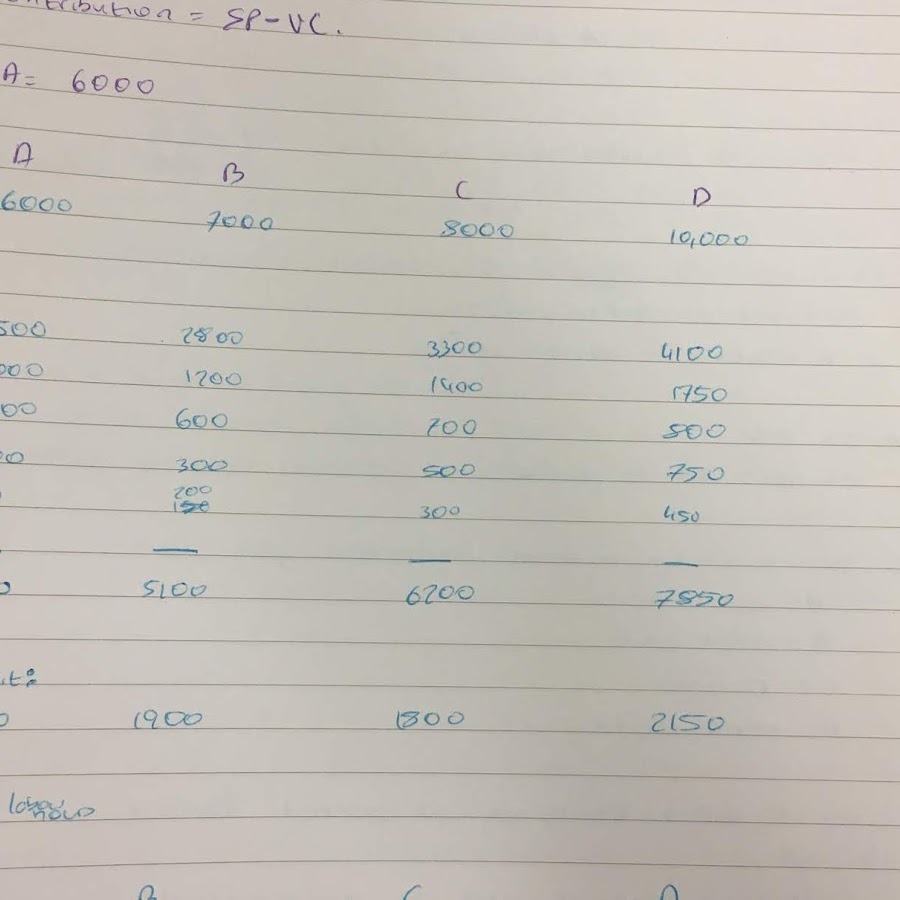 ntribution = SP-VC.
A= 6000
A B C D
6000 7000 8000 10,000
500 2800 3300 4100
000 1200 1400 1750
00 600 700 800
00 300 500 750
200
300 450
5100 6200 7850
t:
1900 1800 2150
labour hours
B C D